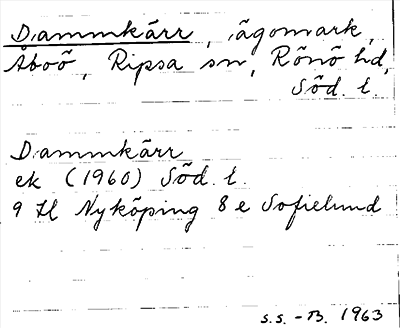 Dammkärr, ägomark,
Åboö, Ripsa sn, Rönö hd,
Söd. l.
Dammkärr
ek (1960) Söd. l.
9 H Nyköping 8 e Sofielund
S.S. - B. 1963